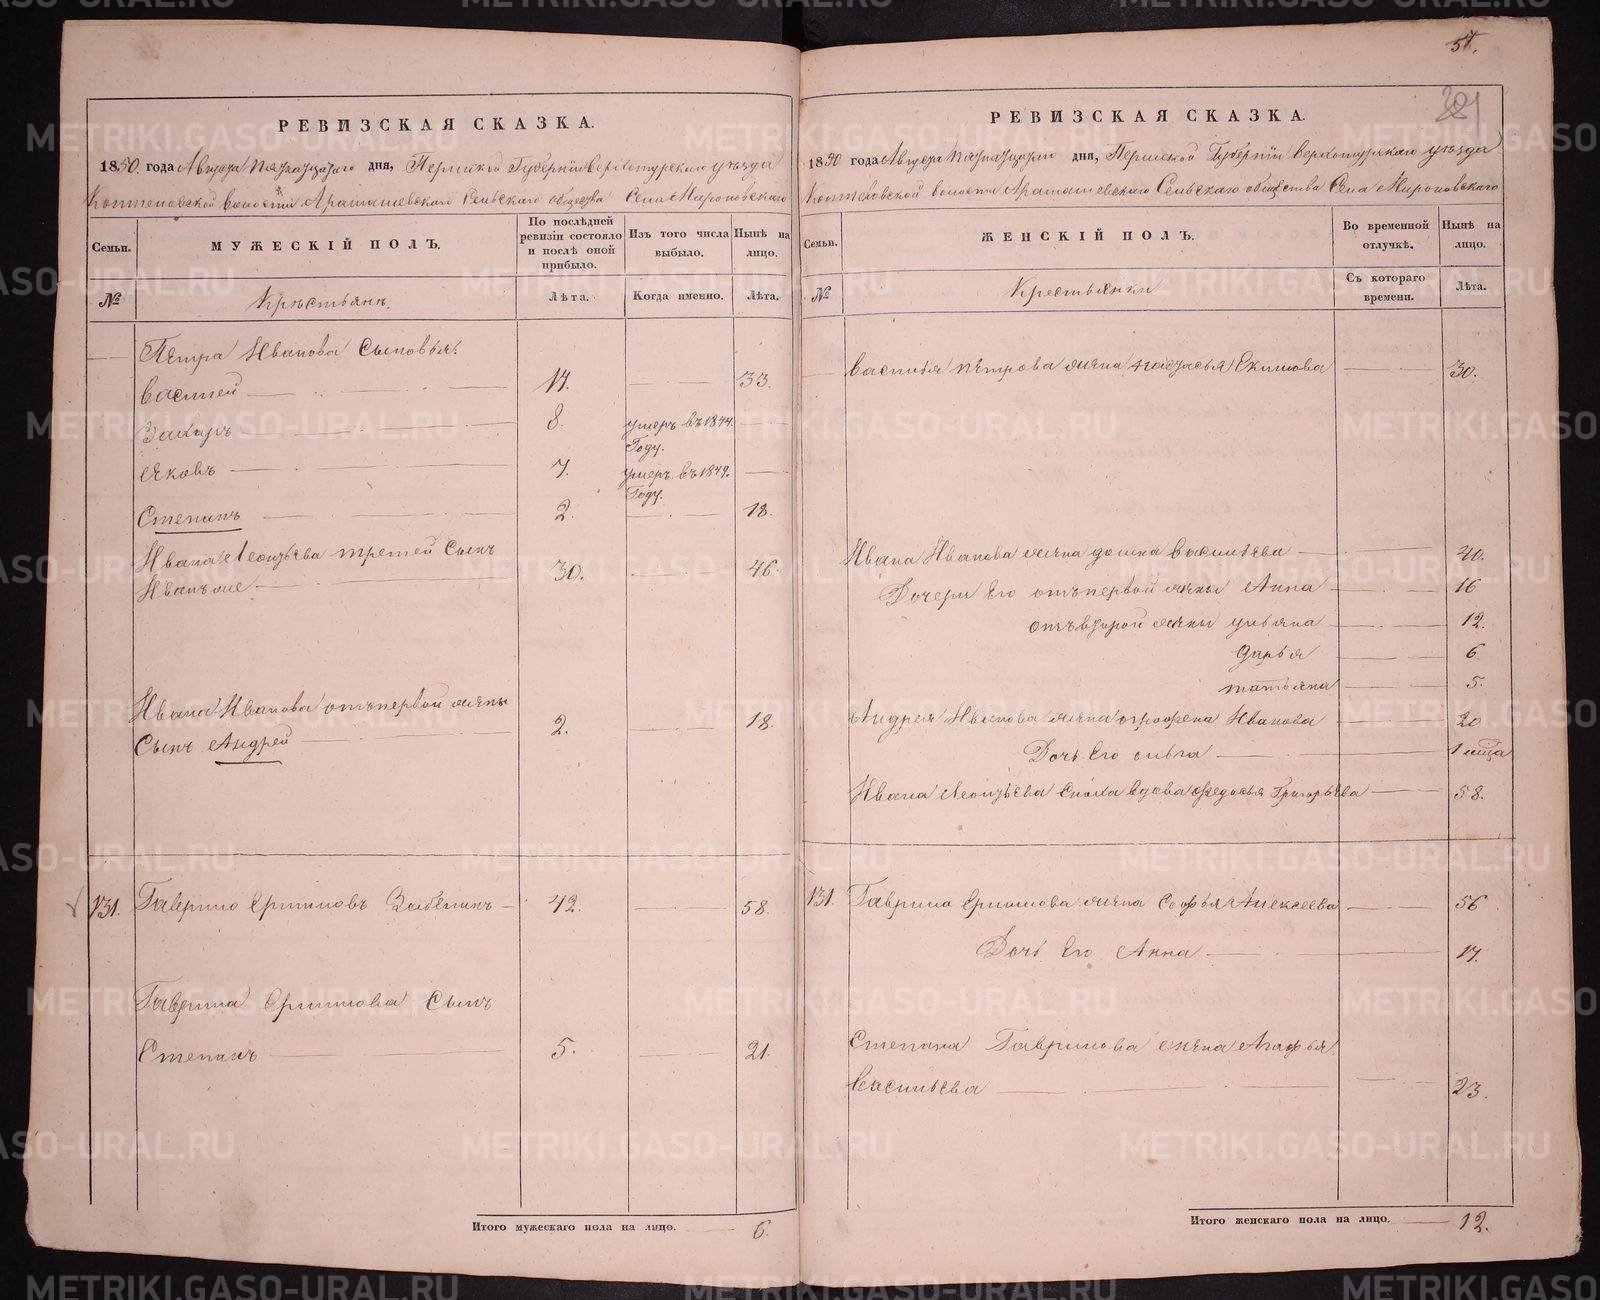 57.
РЕВИЗСКАЯ СКАЗКА.
1850 года Августа Пятнадцатаго дня, Пермской Губерніи Верхотурскаго уѣзда
волости Арамашевскаго Сельскаго общества Села Мироновскаго
Семьи.
МУЖЕСКІЙ ПОЛЪ.
По послѣдней ревизіи состояло и послѣ оной прибыло.
Изъ того числа выбыло.
Нынѣ на лицо.
№
Крестьянъ.
Лѣта.
Когда именно.
Лѣта.
Петра Иванова Сыновья:
Василей 17. 33.
Захаръ 8. умеръ въ 1844. Году.
Яковъ 7. умеръ въ 1849. Году.
Степанъ 2. 18.
Ивана Леонтьева третей Сынъ
Иванъ же 30. 46.
Ивана Иванова отъ первой жены
Сынъ Андрей 2. 18.
131. Гаврило Ефимовъ 42. 58.
Гаврила Ефимова Сынъ
Степанъ 5. 21.
Итого мужескаго пола на лицо. 6.
РЕВИЗСКАЯ СКАЗКА.
1850 года Августа Пятнадцатаго дня, Пермской Губерніи Верхотурскаго уѣзда
волости Арамашевскаго Сельскаго общества Села Мироновскаго
Семьи.
ЖЕНСКІЙ ПОЛЪ.
Во временной отлучкѣ.
Нынѣ на лицо.
№
Крестьянки
Съ котораго времени.
Лѣта.
Василья Петрова жена Настасья Екимова 30.
Ивана Иванова жена Васильева 40.
Дочери Его отъ первой жены Анна 16
отъ второй жены Ульяна 12.
Дарья 6
Татьяна 5.
Андрея Иванова жена Огрофена Иванова 20
Дочь Его 1
Ивана Леонтьева Сноха вдова Федосья Григорьева 58.
131. Гаврила Ефимова жена Софья Алексеева 56
Дочь Его Анна 17.
Степана Гаврилова жена Агафья
Васильева 23.
Итого женскаго пола на лицо. 12.
METRIKI.GASO-URAL.RU